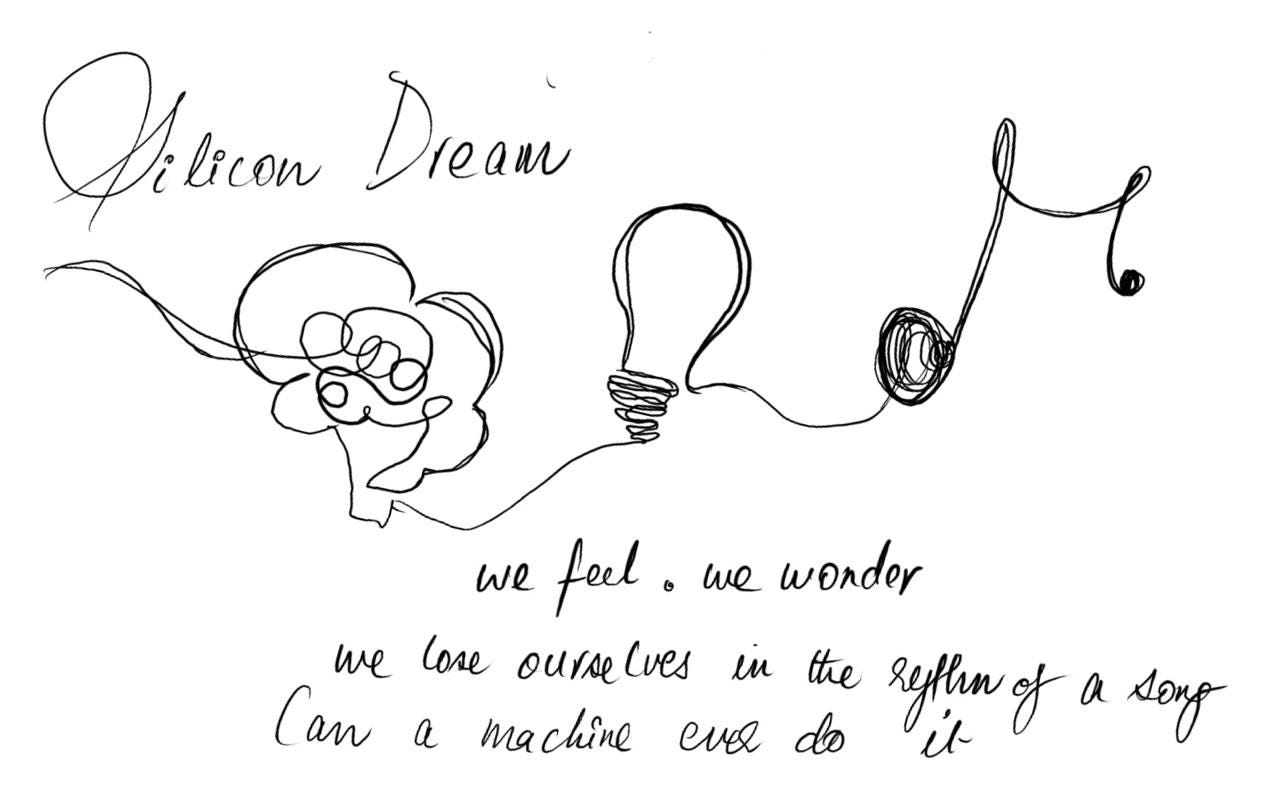 Silicon Dream
we feel. we wonder
we lose ourselves in the rythm of a song
Can a machine ever do it